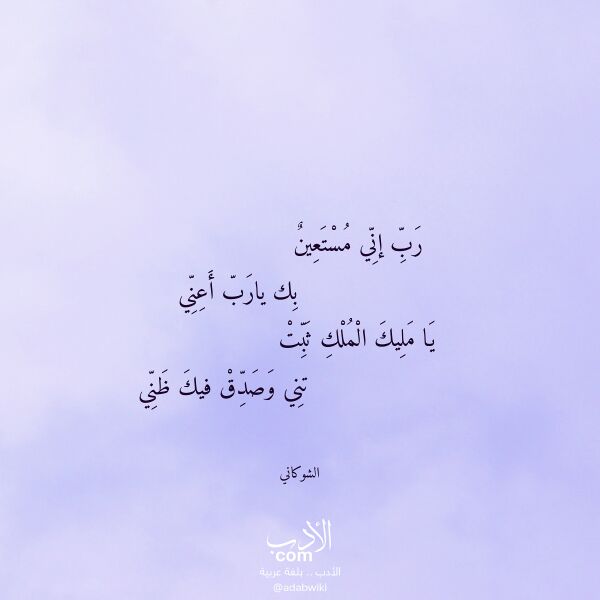 رَبِّ إنِّي مُسْتَعِينٌ
بِك يارَبّ أَعِنِّي
يَا مَلِيكَ الْمُلْكِ ثَبِّتْ
تنِي وَصَدِّقْ فيكَ ظَنِّي
الشوكاني
الأدب
com
الأدب .. بلغة عربية
@adabwiki